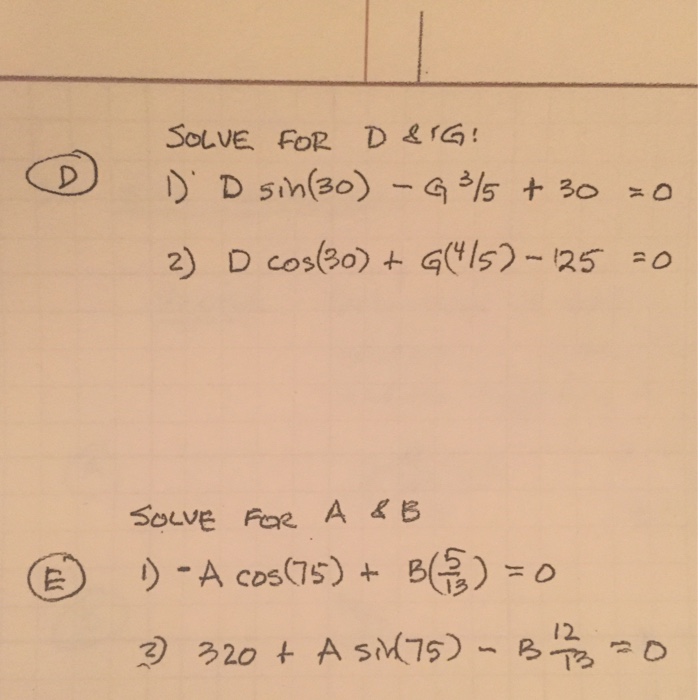 SOLVE FOR D & G:
D
1) D sin(30) - G 3/5 + 30 = 0
2) D cos(30) + G(4/5) - 125 = 0
SOLVE FOR A & B
E
1) -A cos(75) + B(5/13) = 0
2) 320 + A sin(75) - B 12/13 = 0